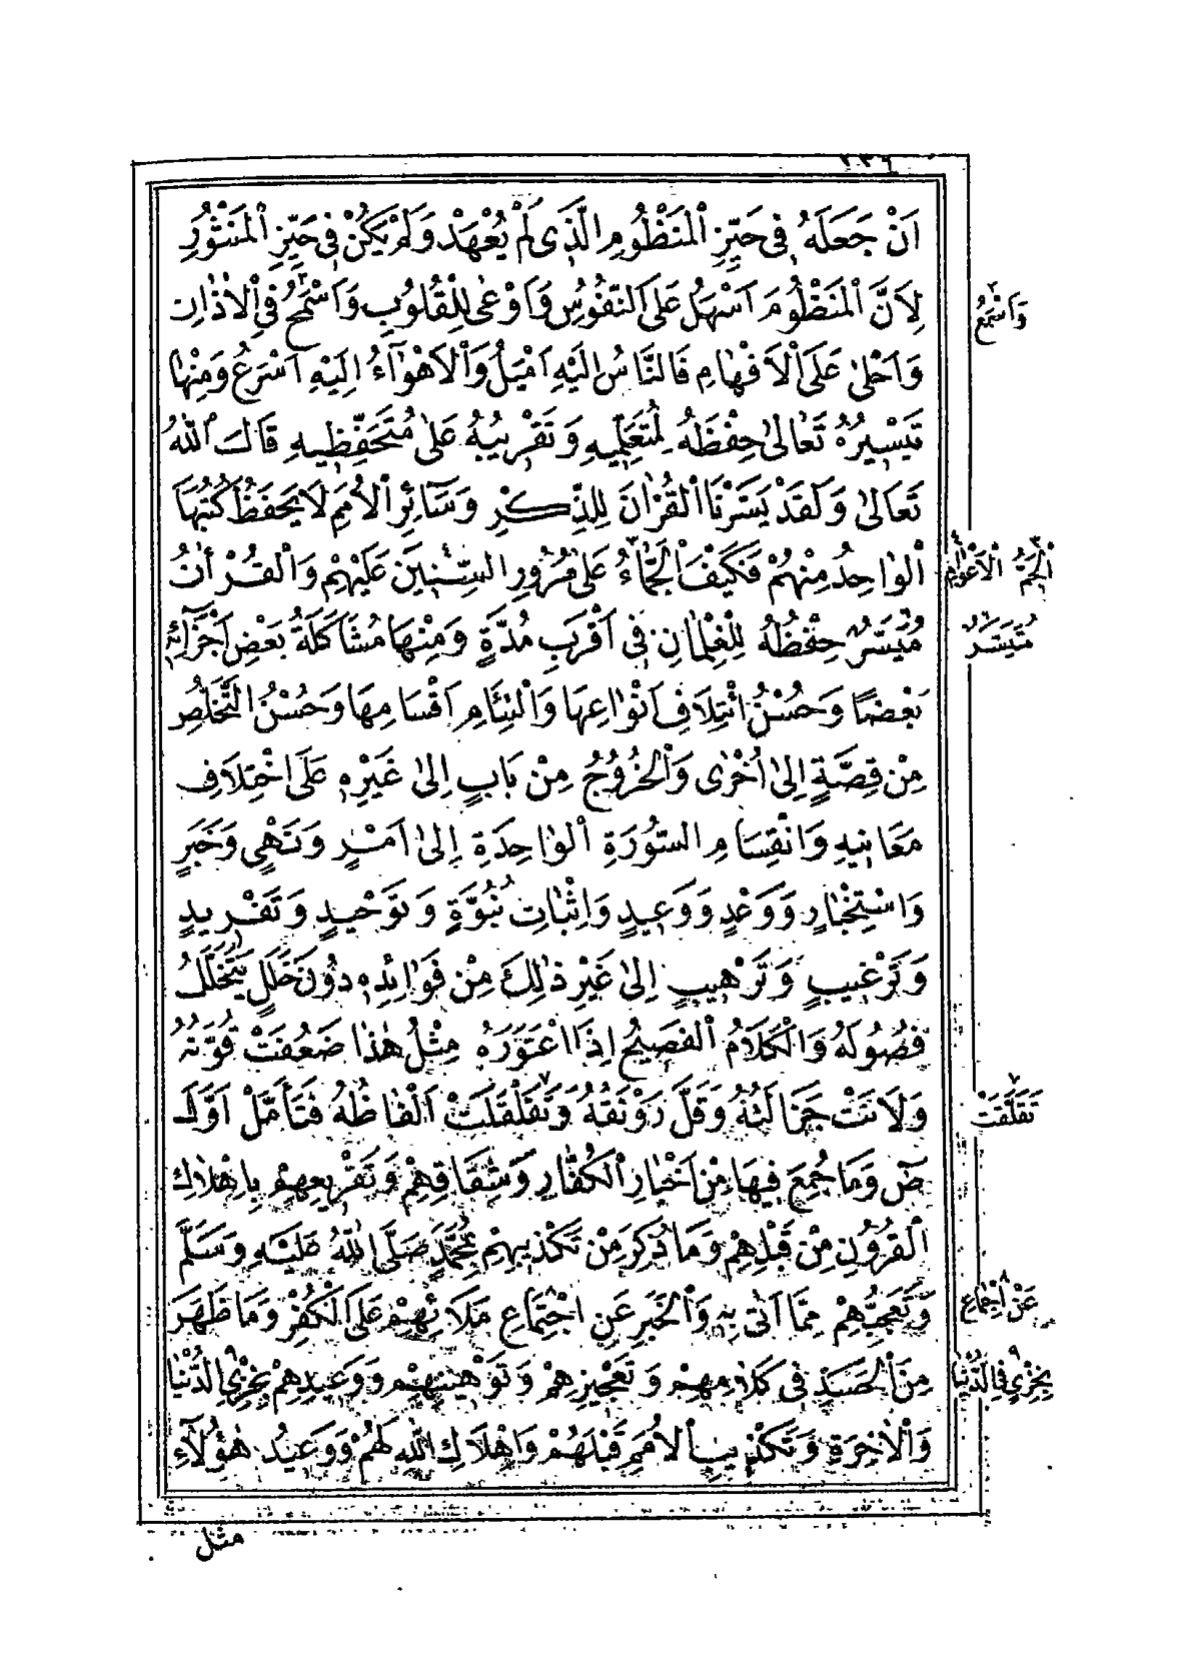 ٢٣٦
اَنْ جَعَلَهُ فِى حَيِّزِ الْمَنْظُومِ الَّذِى لَمْ يُعْهَدْ وَلَمْ يَكُنْ فِى حَيِّزِ الْمَنْثُورِ
لِاَنَّ الْمَنْظُومَ اَسْهَلُ عَلَى النُّفُوسِ وَاَوْعٰى لِلْقُلُوبِ وَاَسْمَحُ فِى الْاٰذَانِ
وَاَحْلٰى عَلَى الْاَفْهَامِ فَالنَّاسُ اِلَيْهِ اَمْيَلُ وَالْاَهْوَاءُ اِلَيْهِ اَسْرَعُ وَمِنْهَا
تَيْسِيرُهُ تَعَالٰى حِفْظَهُ لِمُتَعَلِّمِيهِ وَتَقْرِيبُهُ عَلٰى مُتَحَفِّظِيهِ قَالَ اللّٰهُ
تَعَالٰى وَلَقَدْ يَسَّرْنَا الْقُرْاٰنَ لِلذِّكْرِ وَسَائِرُ الْاُمَمِ لَا يَحْفَظُ كُتُبَهَا
الْوَاحِدُ مِنْهُمْ فَكَيْفَ الْجَمَّاءُ عَلٰى مُرُورِ السِّنِينَ عَلَيْهِمْ وَالْقُرْاٰنُ
مُيَسَّرٌ حِفْظُهُ لِلْغِلْمَانِ فِى اَقْرَبِ مُدَّةٍ وَمِنْهَا مُشَاكَلَةُ بَعْضِ اَجْزَائِهِ
بَعْضًا وَحُسْنُ ائْتِلَافِ اَنْوَاعِهَا وَالْتِئَامِ اَقْسَامِهَا وَحُسْنُ التَّخَلُّصِ
مِنْ قِصَّةٍ اِلٰى اُخْرٰى وَالْخُرُوجُ مِنْ بَابٍ اِلٰى غَيْرِهِ عَلَى اخْتِلَافِ
مَعَانِيهِ وَانْقِسَامِ السُّورَةِ الْوَاحِدَةِ اِلٰى اَمْرٍ وَنَهْىٍ وَخَبَرٍ
وَاسْتِخْبَارٍ وَوَعْدٍ وَوَعِيدٍ وَاِثْبَاتِ نُبُوَّةٍ وَتَوْحِيدٍ وَتَفْرِيدٍ
وَتَرْغِيبٍ وَتَرْهِيبٍ اِلٰى غَيْرِ ذٰلِكَ مِنْ فَوَائِدِهِ دُونَ خَلَلٍ يَتَخَلَّلُ
فُصُولَهُ وَالْكَلَامُ الْفَصِيحُ اِذَا اعْتَوَرَهُ مِثْلُ هٰذَا ضَعُفَتْ قُوَّتُهُ
وَلَانَتْ جَزَالَتُهُ وَقَلَّ رَوْنَقُهُ وَتَقَلْقَلَتْ اَلْفَاظُهُ فَتَأَمَّلْ اَوَّلَ
صٓ وَمَا جُمِعَ فِيهَا مِنْ اَخْبَارِ الْكُفَّارِ وَشِقَاقِهِمْ وَتَقْرِيعِهِمْ بِاِهْلَاكِ
الْقُرُونِ مِنْ قَبْلِهِمْ وَمَا ذُكِرَ مِنْ تَكْذِيبِهِمْ بِمُحَمَّدٍ صَلَّى اللّٰهُ عَلَيْهِ وَسَلَّمَ
وَتَعَجُّبِهِمْ مِمَّا اَتٰى بِهِ وَالْخَبَرِ عَنِ اجْتِمَاعِ مَلَائِهِمْ عَلَى الْكُفْرِ وَمَا ظَهَرَ
مِنَ الْحَسَدِ فِى كَلَامِهِمْ وَتَعْجِيزِهِمْ وَتَوْهِينِهِمْ وَوَعِيدِهِمْ بِخِزْىِ الدُّنْيَا
وَالْاٰخِرَةِ وَتَكْذِيبِ الْاُمَمِ قَبْلَهُمْ وَاِهْلَاكِ اللّٰهِ لَهُمْ وَوَعِيدُ هٰؤُلَاءِ
مثل
٢ وَاَسْمَعُ
٣ الْجَمُّ ٤ الْاَعْوَامِ
مُتَيَسَّرٌ
٧ تَقَلَّقَتْ
٨ عَنْ اِجْمَاعِ
٩ بِخِزْىٍ فِى الدُّنْيَا